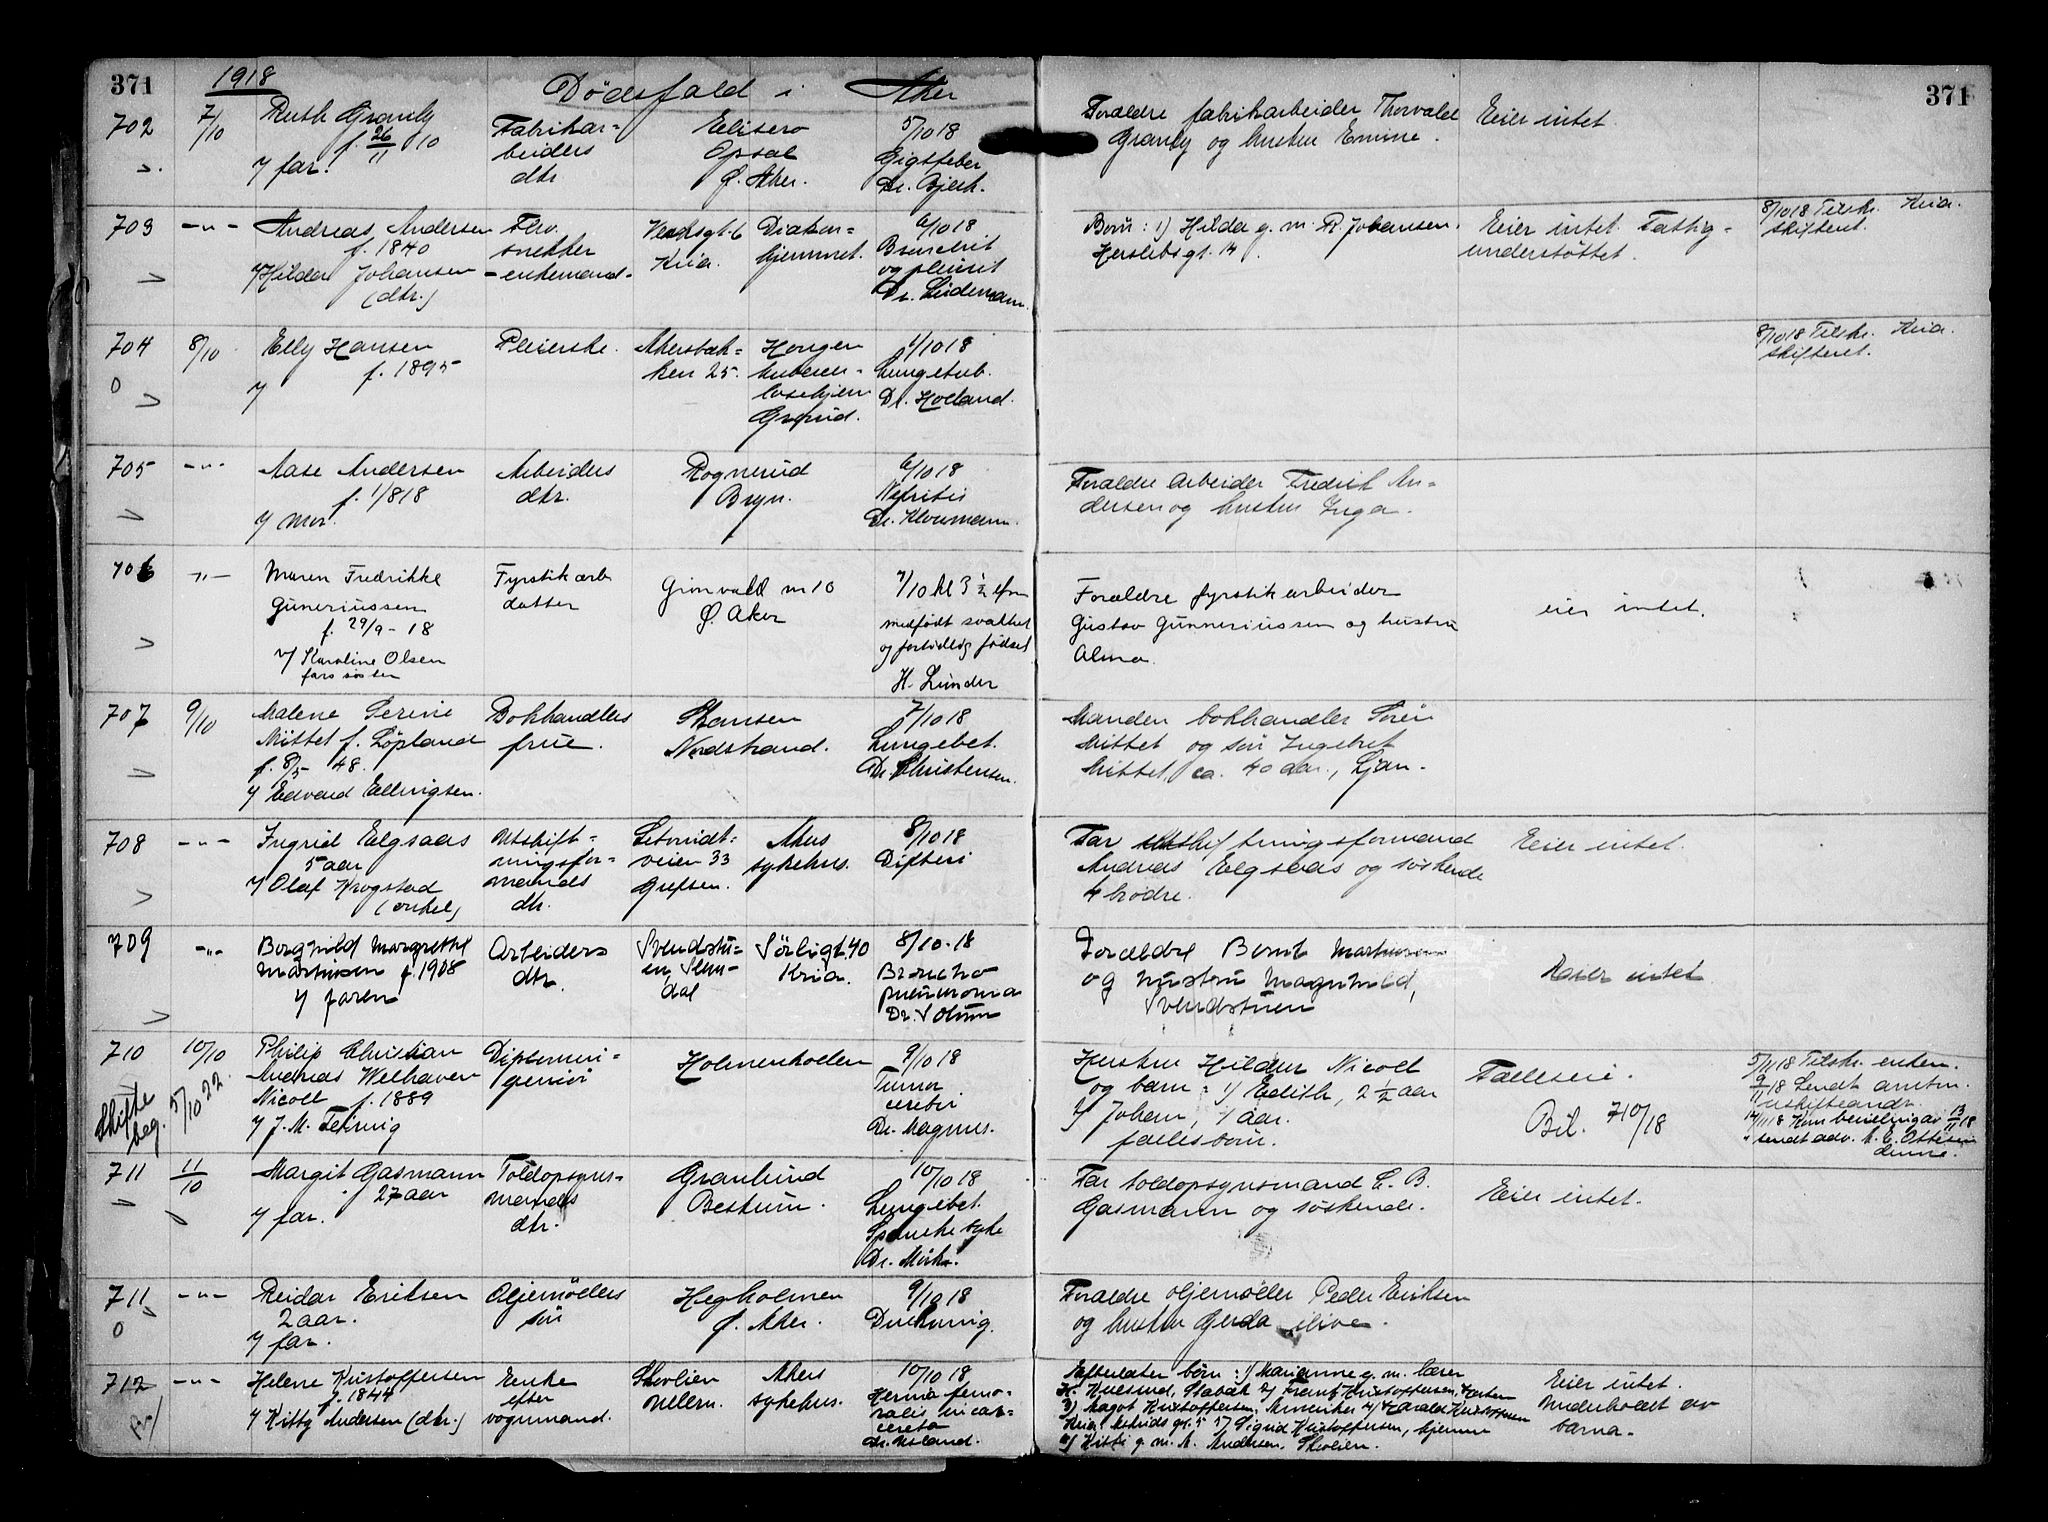 371
1918
Dødsfald i Aker
371
702
7/10
Ruth Granly
f. 26/11 10
v/ far.
Fabrikar=
beiders
dtr.
Ø. Aker.
5/10 18
Gigtfeber
Dr. Bjerk.
Foraldre fabrikarbeider Thorvald
Granly og hustru Emine.
Eier intet.
703
-"-
Andreas Andersen
f. 1840
v/ Hilda Johansen
(dtr.)
Flv.
snekker
-enkemand-
Kria.
Diakon=
hjemmet.
6/10 18
Bronchit
og pleurit
Dr. Lindeman.
Born: 1) Hilda g. m. R. Johansen.
Herslebsgt. 14.
Eier intet. Fattig-
understøttet.
8/10 18 Tilskr. Kria.
skifteret.
704
8/10
Elly Hansen
f. 1895
v/
Pleierske.
Akersbak=
ken 25.
Hougen
tuberku-
losehjem
Grorud.
1/10 18
Lungetub.
Dr. Holland.
8/10 18 Tilskr. Kria.
skifteret.
705
-"-
Aase Andersen
f. 1/8 18
v/ mor.
Arbeiders
dtr.
Rognerud
Bryn.
6/10 18
Nefritis
Dr. Kloumann.
Foraldre arbeider Fredrik An=
dersen og hustru Inga.
706
-"-
Maren Fredrikke
Guneriussen
f. 29/9 - 18
v/ Karoline Olsen
fars søster
Fyrstikarb
datter
Grønvold m 10
Ø. Aker
7/10 kl 3 1/2 efm
medfødt svakhet
og fortidlig fødsel
H. Lunder
Forældre fyrstikarbeider
Gustav Gunneriussen og hustru
Alma.
eier intet.
707
9/10
Malene Serine
Mittet f. Løpland
f. 8/5 48.
v/ Edvard Ellingsen.
Bokhandlers
frue.
Skansen
Nordstrand.
7/10 18
Lungebet.
Dr. Christensen.
Manden bokhandler Søren
Mittet og søn Ingebret
Mittet, ca. 40 aar., Ljan.
708
-"-
Ingrid Elgsaas
5 aar
v/ Olaf Krogstad
(onkel)
Utskift=
ningsfor=
mands
dtr.
veien 33
Grefsen.
Akers
sykehus.
8/10 18
Difteri
Far utskiftningsformand
Andreas Elgsaas og søskende
4 brødre.
Eier intet.
709
-"-
Borghild Margrethe
Martinsen f. 1908
v/ faren
Arbeiders
dtr.
Svendstu=
en Slem-
dal
Sørligt. 40
Kria.
8/10-18
Broncho
pneumonia
Dr. Solum
Forældre Bernt Martinsen
og hustru Magnhild,
Svendstuen
Eier intet
710
10/10
Skifte
beg. 5/10 22.
Philip Christian
Andreas Welhaven
Nicoll f. 1889
v/ J. M. Fehrnig
Diplomin-
geniør
Holmenkollen
9/10 18
Tumor
cerebri
Dr. Magnus.
Hustru Hildur Nicoll
og barn: 1) Edith, 2 1/2 aar
2) Johan, 1 aar.
fællesbørn.
Fælleseie.
Bil. 710/18
5/11 18 Tilskr. enken.
9/11 18 Sendt amtm.
uskifteandr.
14/11 18 Kom bevilling av 13/11 18
711
11/10
Margit Gasmann
27 aar
v/ far.
Toldopsyns-
mands
dtr.
Granlund
Bestum.
10/10 18
Lungebet.
Spanske syke
Dr. Mørk.
Far toldopsynsmand C. B.
Gasmann og søskende.
Eier intet.
711
-"-
Reidar Eriksen
2 aar.
v/ far.
Oljemøllers
søn
Hegholmen
Ø. Aker.
9/10 18
Drukning.
Foraldre oljemøller Peder Eriksen
og hustru Gerda ilive.
712
-"-
Helene Kristoffersen
f. 1844
v/ Kitty Andersen (dtr.)
Enke
efter
vognmand.
Skolien
Ullern.
Akers
sykehus.
10/10 18
Hernia femo-
ralis incar=
cerata
Dr. Usland.
Efterlater børn: 1) Marianne g. m. lærer
3) Magot Kristoffersen, Amerika 4) Harald Kristoffersen
5) Sigrid Kristoffersen, hjemme
6) Kitti g. m. A. Andersen, Skolien.
Eier intet.
Underholdt av
barna.